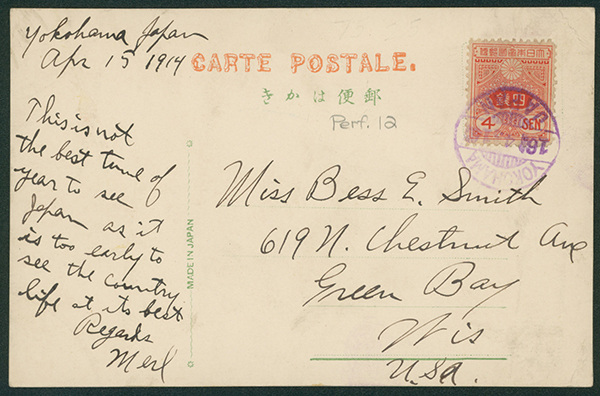 Yokohama Japan
Apr 15 1914
CARTE POSTALE.
きかは便郵
Perf. 12
This is not
the best time of
year to see
Japan as it
is too early to
see the country
life at its best
Regards
Merl
MADE IN JAPAN
Miss Bess E. Smith
619 N. Chestnut Ave
Green Bay
Wis
USA.
4 SEN
YOKOHAMA